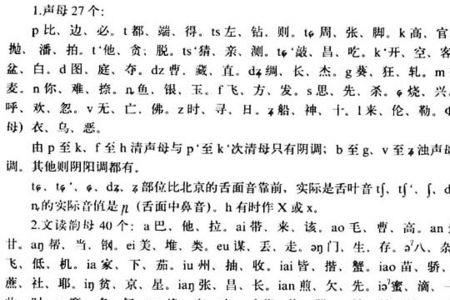 1.声母27个:
p比、边、必。t都、端、得。ts左、钻、则。tɕ周、张、脚。k高、官、
抛、潘、拍。t‘他、贪、脱。ts‘猜、亲、测。tɕ‘敲、昌、吃。k‘开、空、客
盆、白。d图、庭、夺。dz曹、藏、直。dʑ绸、长、杰。g葵、狂、轧。m
麦。n你、难、捺。ȵ鱼、银、玉。f飞、方、发。s思、先、杀。ɕ烧、兴、
呼、欢、忽。v无、亡、佛。z时、寻、日。ʑ船、神、十。l来、伦、勒。
母）衣、乌、恶。
由p至k、f至h清声母与p‘至k‘次清母只有阴调；b至g、v至ʑ浊声母
调。其他则阴阳调都有。
tɕ、tɕ‘、ɕ、dʑ、ʑ部位比北京的舌面音靠前，实际是舌叶音tʃ、tʃ‘、ʃ、d
ȵ的实际音值是ɲ（舌面中鼻音）。h有时作X或x。
2.文读韵母40个：a巴、他、拉。ai带、来、该。ao毛、曹、高。an
甘。aŋ帮、当、钢。ei美、堆、类。eu谋、丢、走。əŋ门、生、存。aˀ八、杂
飞、低、机。ia家、下、茄。iu州、抽、收。iai皆、揩、蟹。iao苗、骄、
蔗、社、耶。iŋ贫、京、星。iaŋ张、昌、长。ian煎、欠、先。iəˀ蜜、滴、